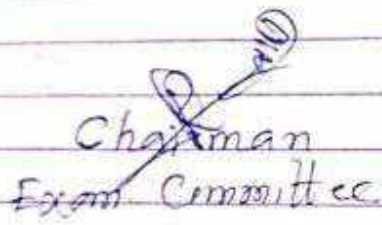 Chairman
Exam Committee.